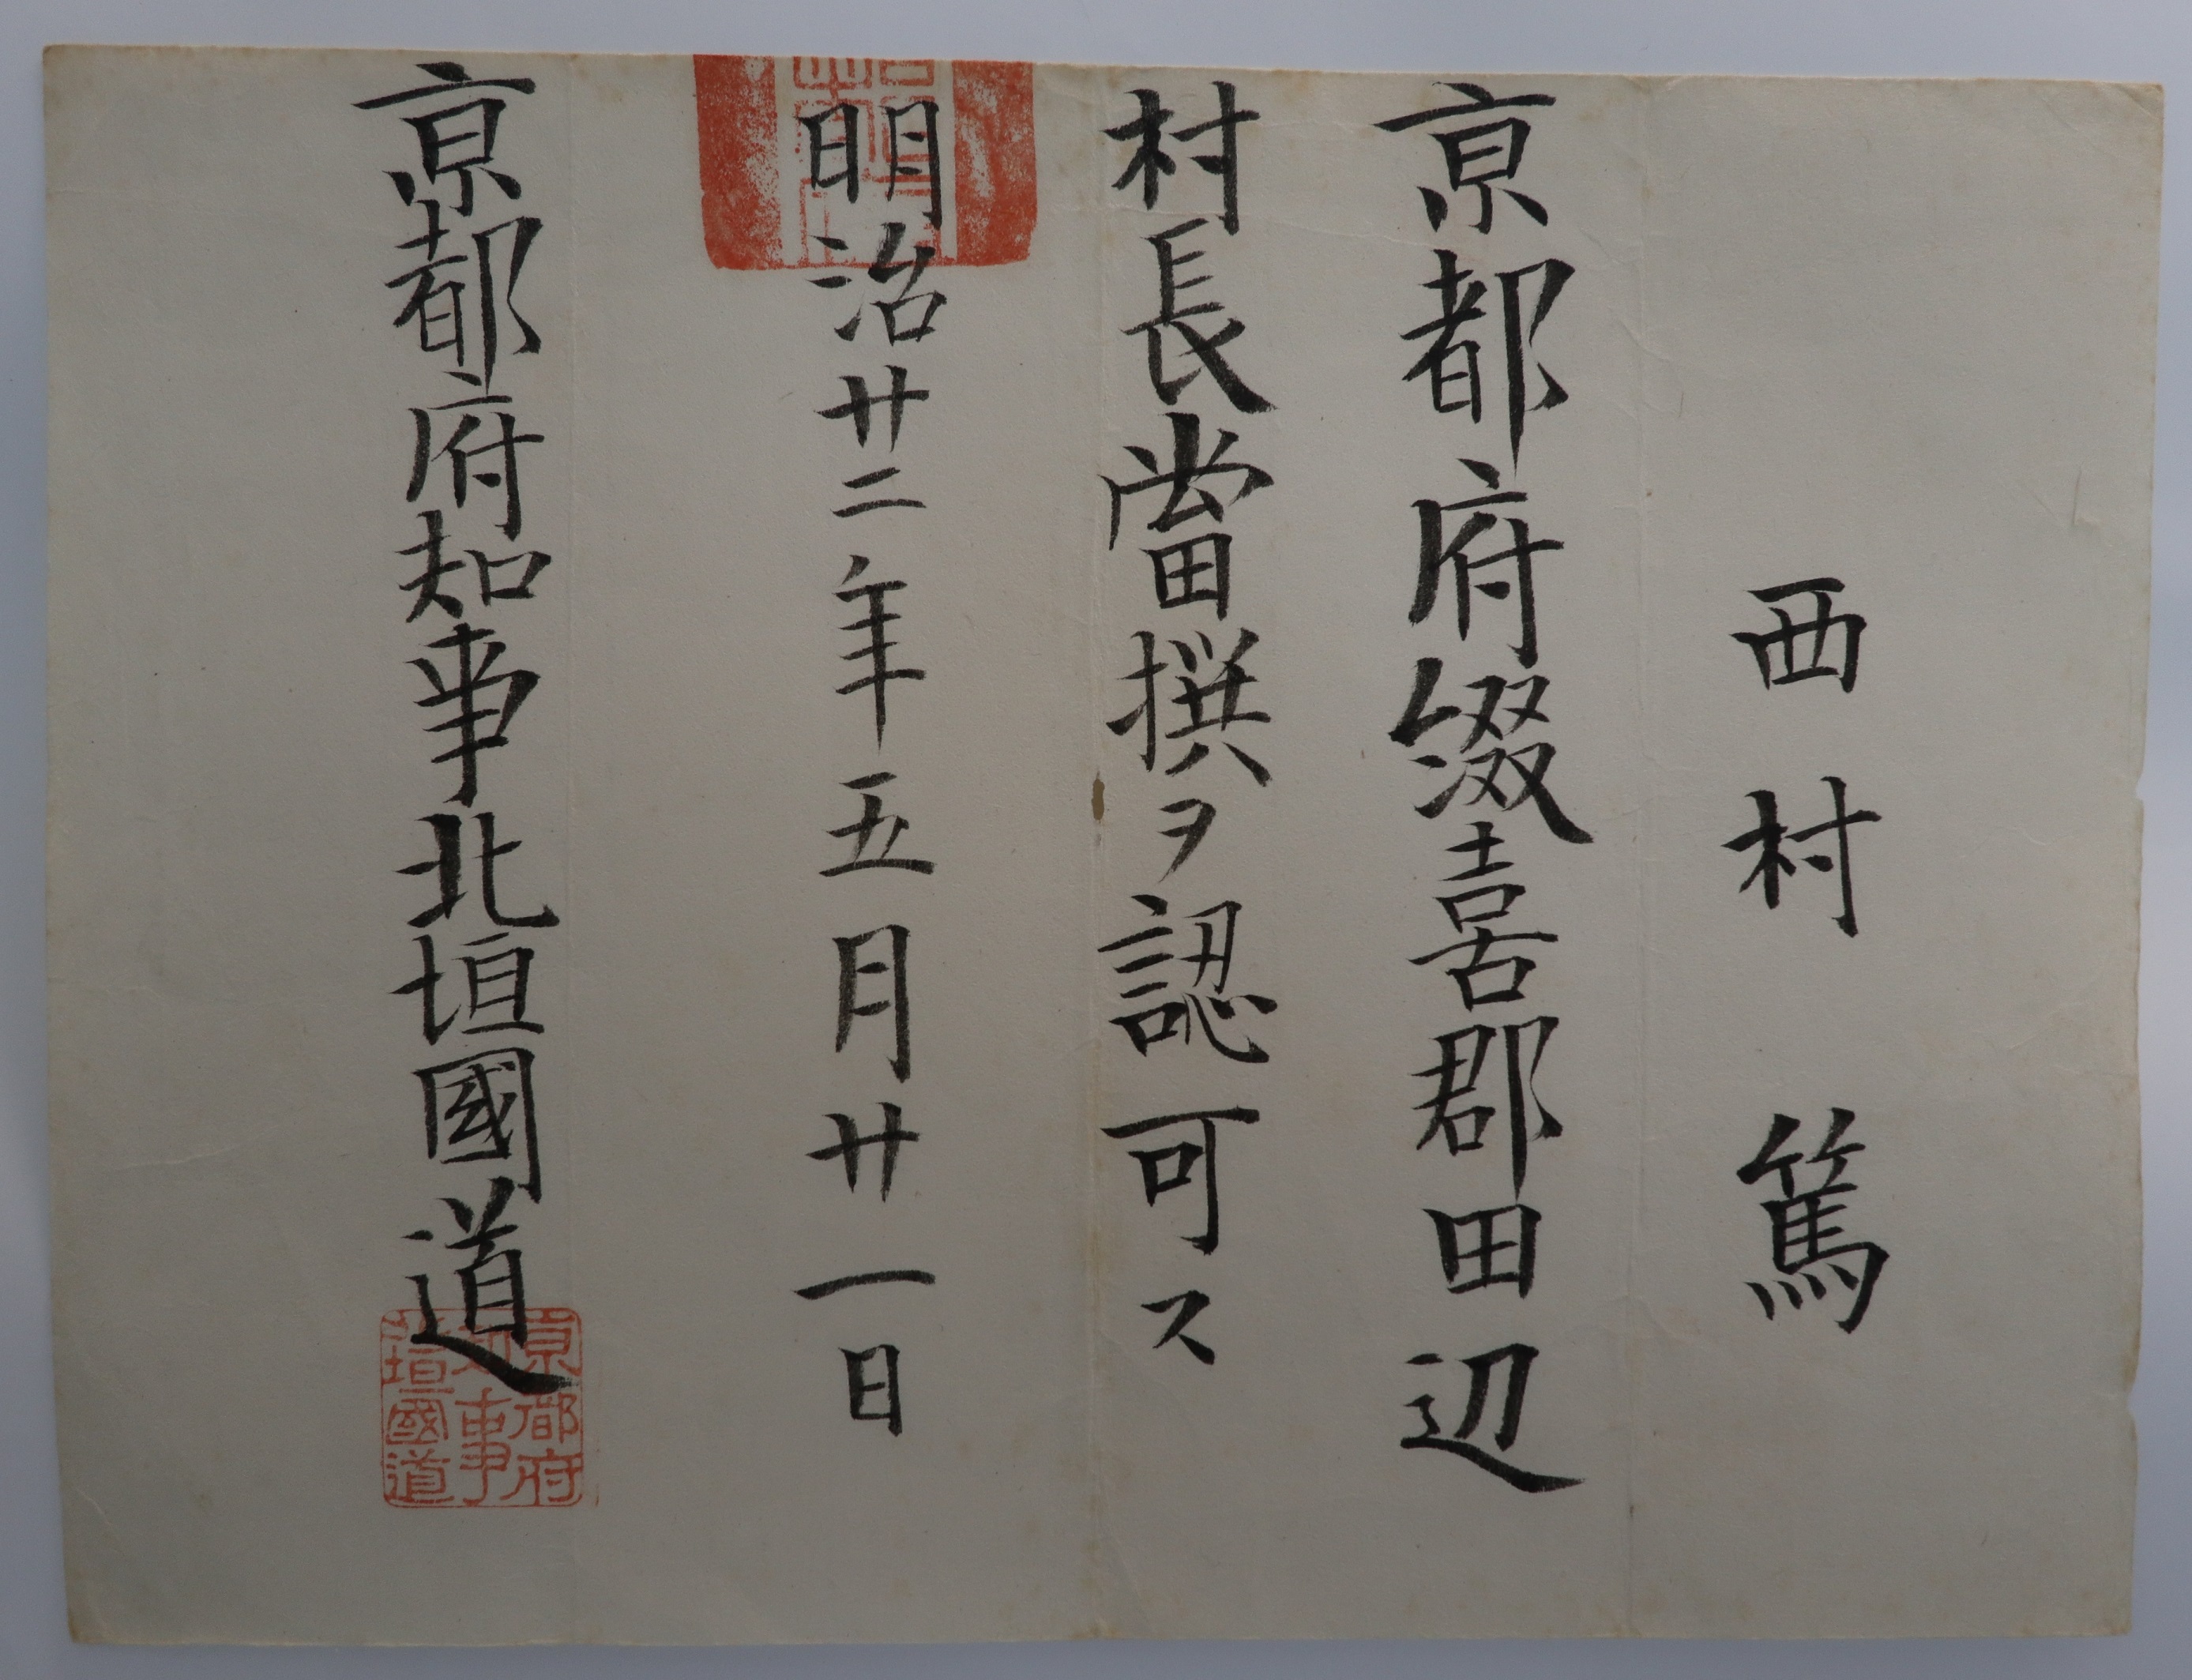 西村篤
京都府綴喜郡田辺
村長當撰ヲ認可ス
明治廿二年五月廿一日
京都府知事北垣國道
京都府
知事
北垣國道